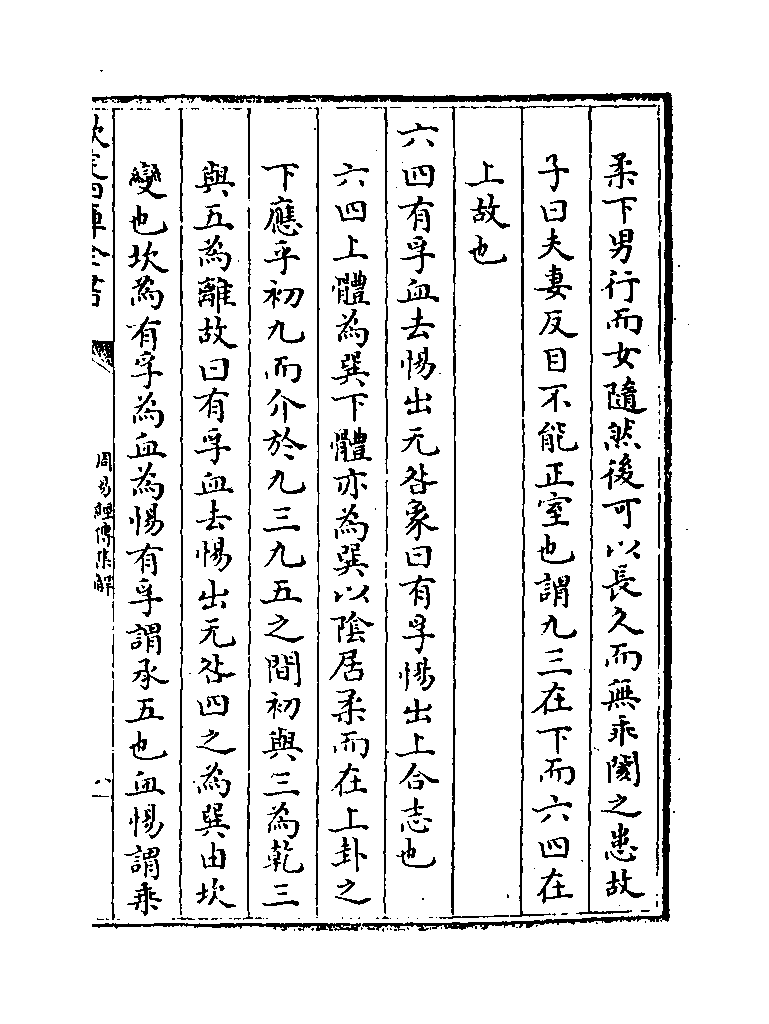 柔下男行而女隨然後可以長久而無乖閡之患故
子曰夫妻反目不能正室也謂九三在下而六四在
上故也
六四有孚血去惕出无咎象曰有孚惕出上合志也
六四上體為巽下體亦為巽以陰居柔而在上卦之
下應乎初九而介於九三九五之間初與三為乾三
與五為離故曰有孚血去惕出无咎四之為巽由坎
變也坎為有孚為血為惕有孚謂承五也血惕謂乘
欽定四庫全書
周易經傳集解